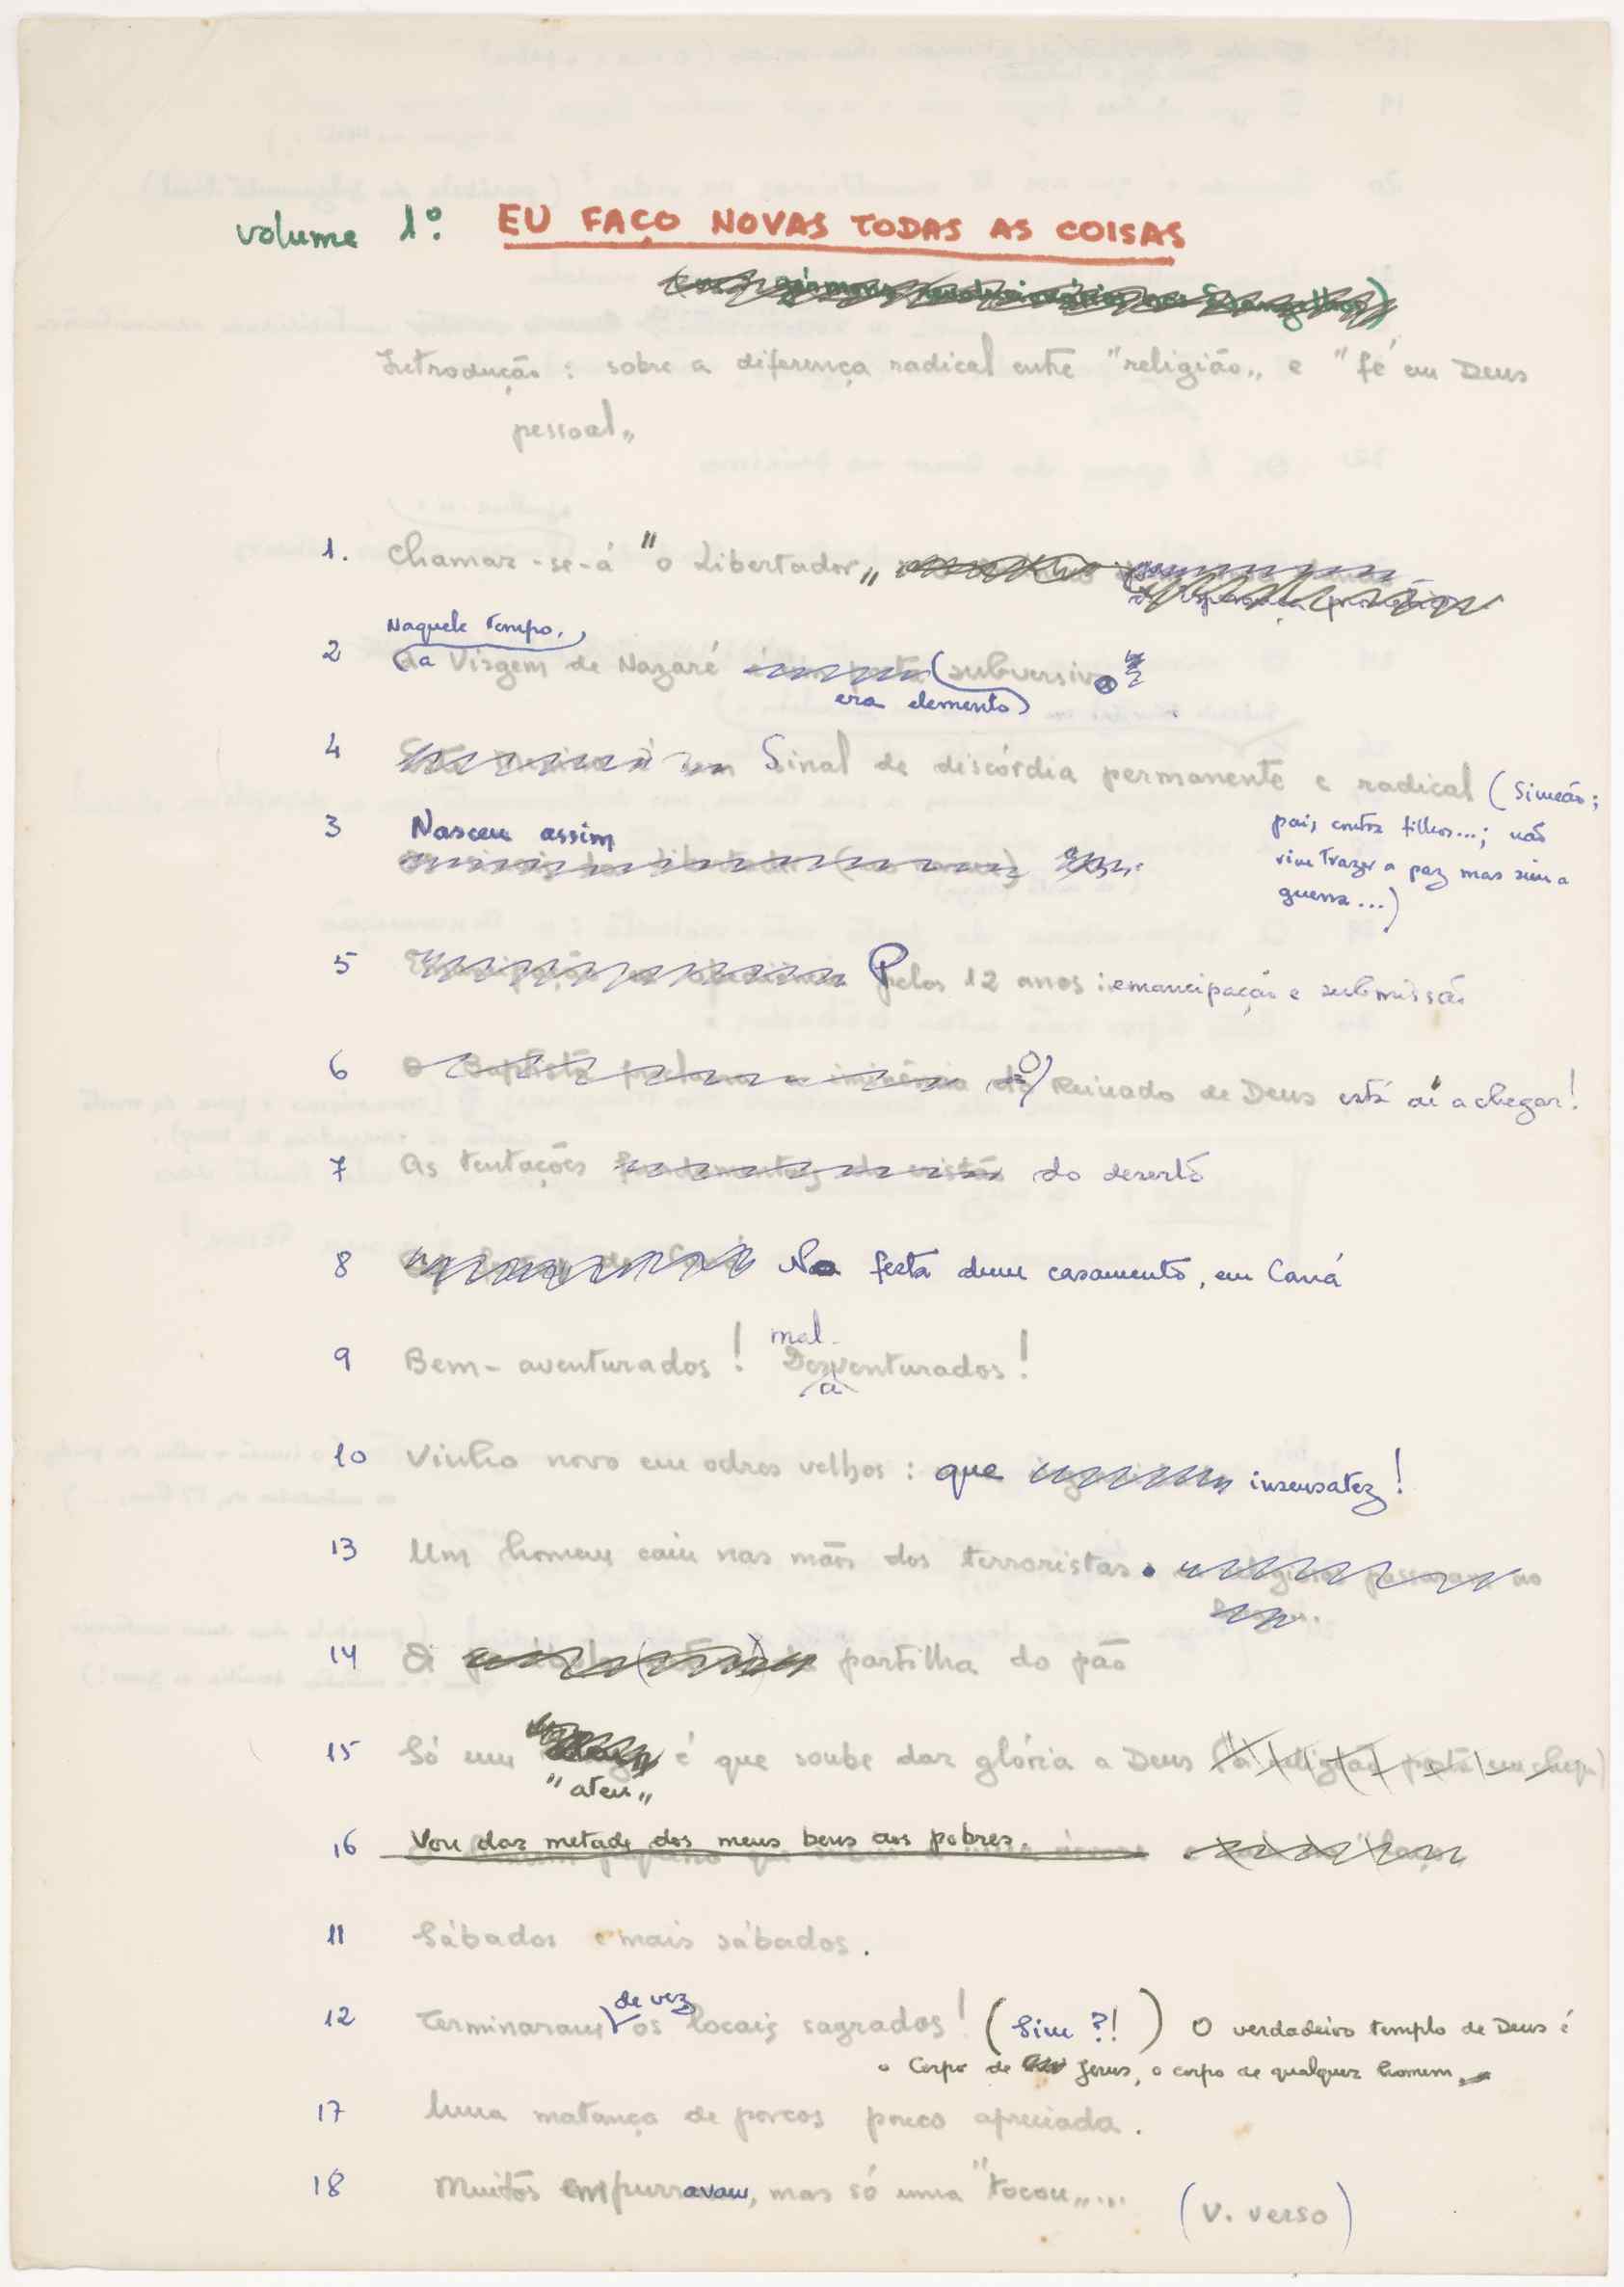 volume 1º: EU FAÇO NOVAS TODAS AS COISAS
Introdução : sobre a diferença radical entre "religião„ e "fé em Deus
pessoal„
1. Chamar-se-á "o Libertador„
Naquele tempo,
2 a Virgem de Nazaré subversivo
era elemento
4 Sinal de discórdia permanente e radical (Simeão;
pais contra filhos...; não
vim trazer a paz mas sim a
guerra...)
3 Nasceu assim
5 Pelos 12 anos : emancipação e submissão
6 O Reinado de Deus está aí a chegar!
7 As tentações do deserto
8 Na festa dum casamento, em Caná
mal-
9 Bem-aventurados! Desventurados!
a
10 Vinho novo em odres velhos : que insensatez!
13 Um homem caiu nas mãos dos terroristas.
14 partilha do pão
15 Só um é que soube dar glória a Deus
"ateu„
16 Vou dar metade dos meus bens aos pobres.
11 Sábados e mais sábados.
de vez
12 Terminaram os locais sagrados! (Sim ?!) O verdadeiro templo de Deus é
o Corpo de Jesus, o corpo de qualquer homem.
17 Uma matança de porcos pouco apreciada.
18 Muitos empurravam, mas só uma "tocou„...
(v. verso)